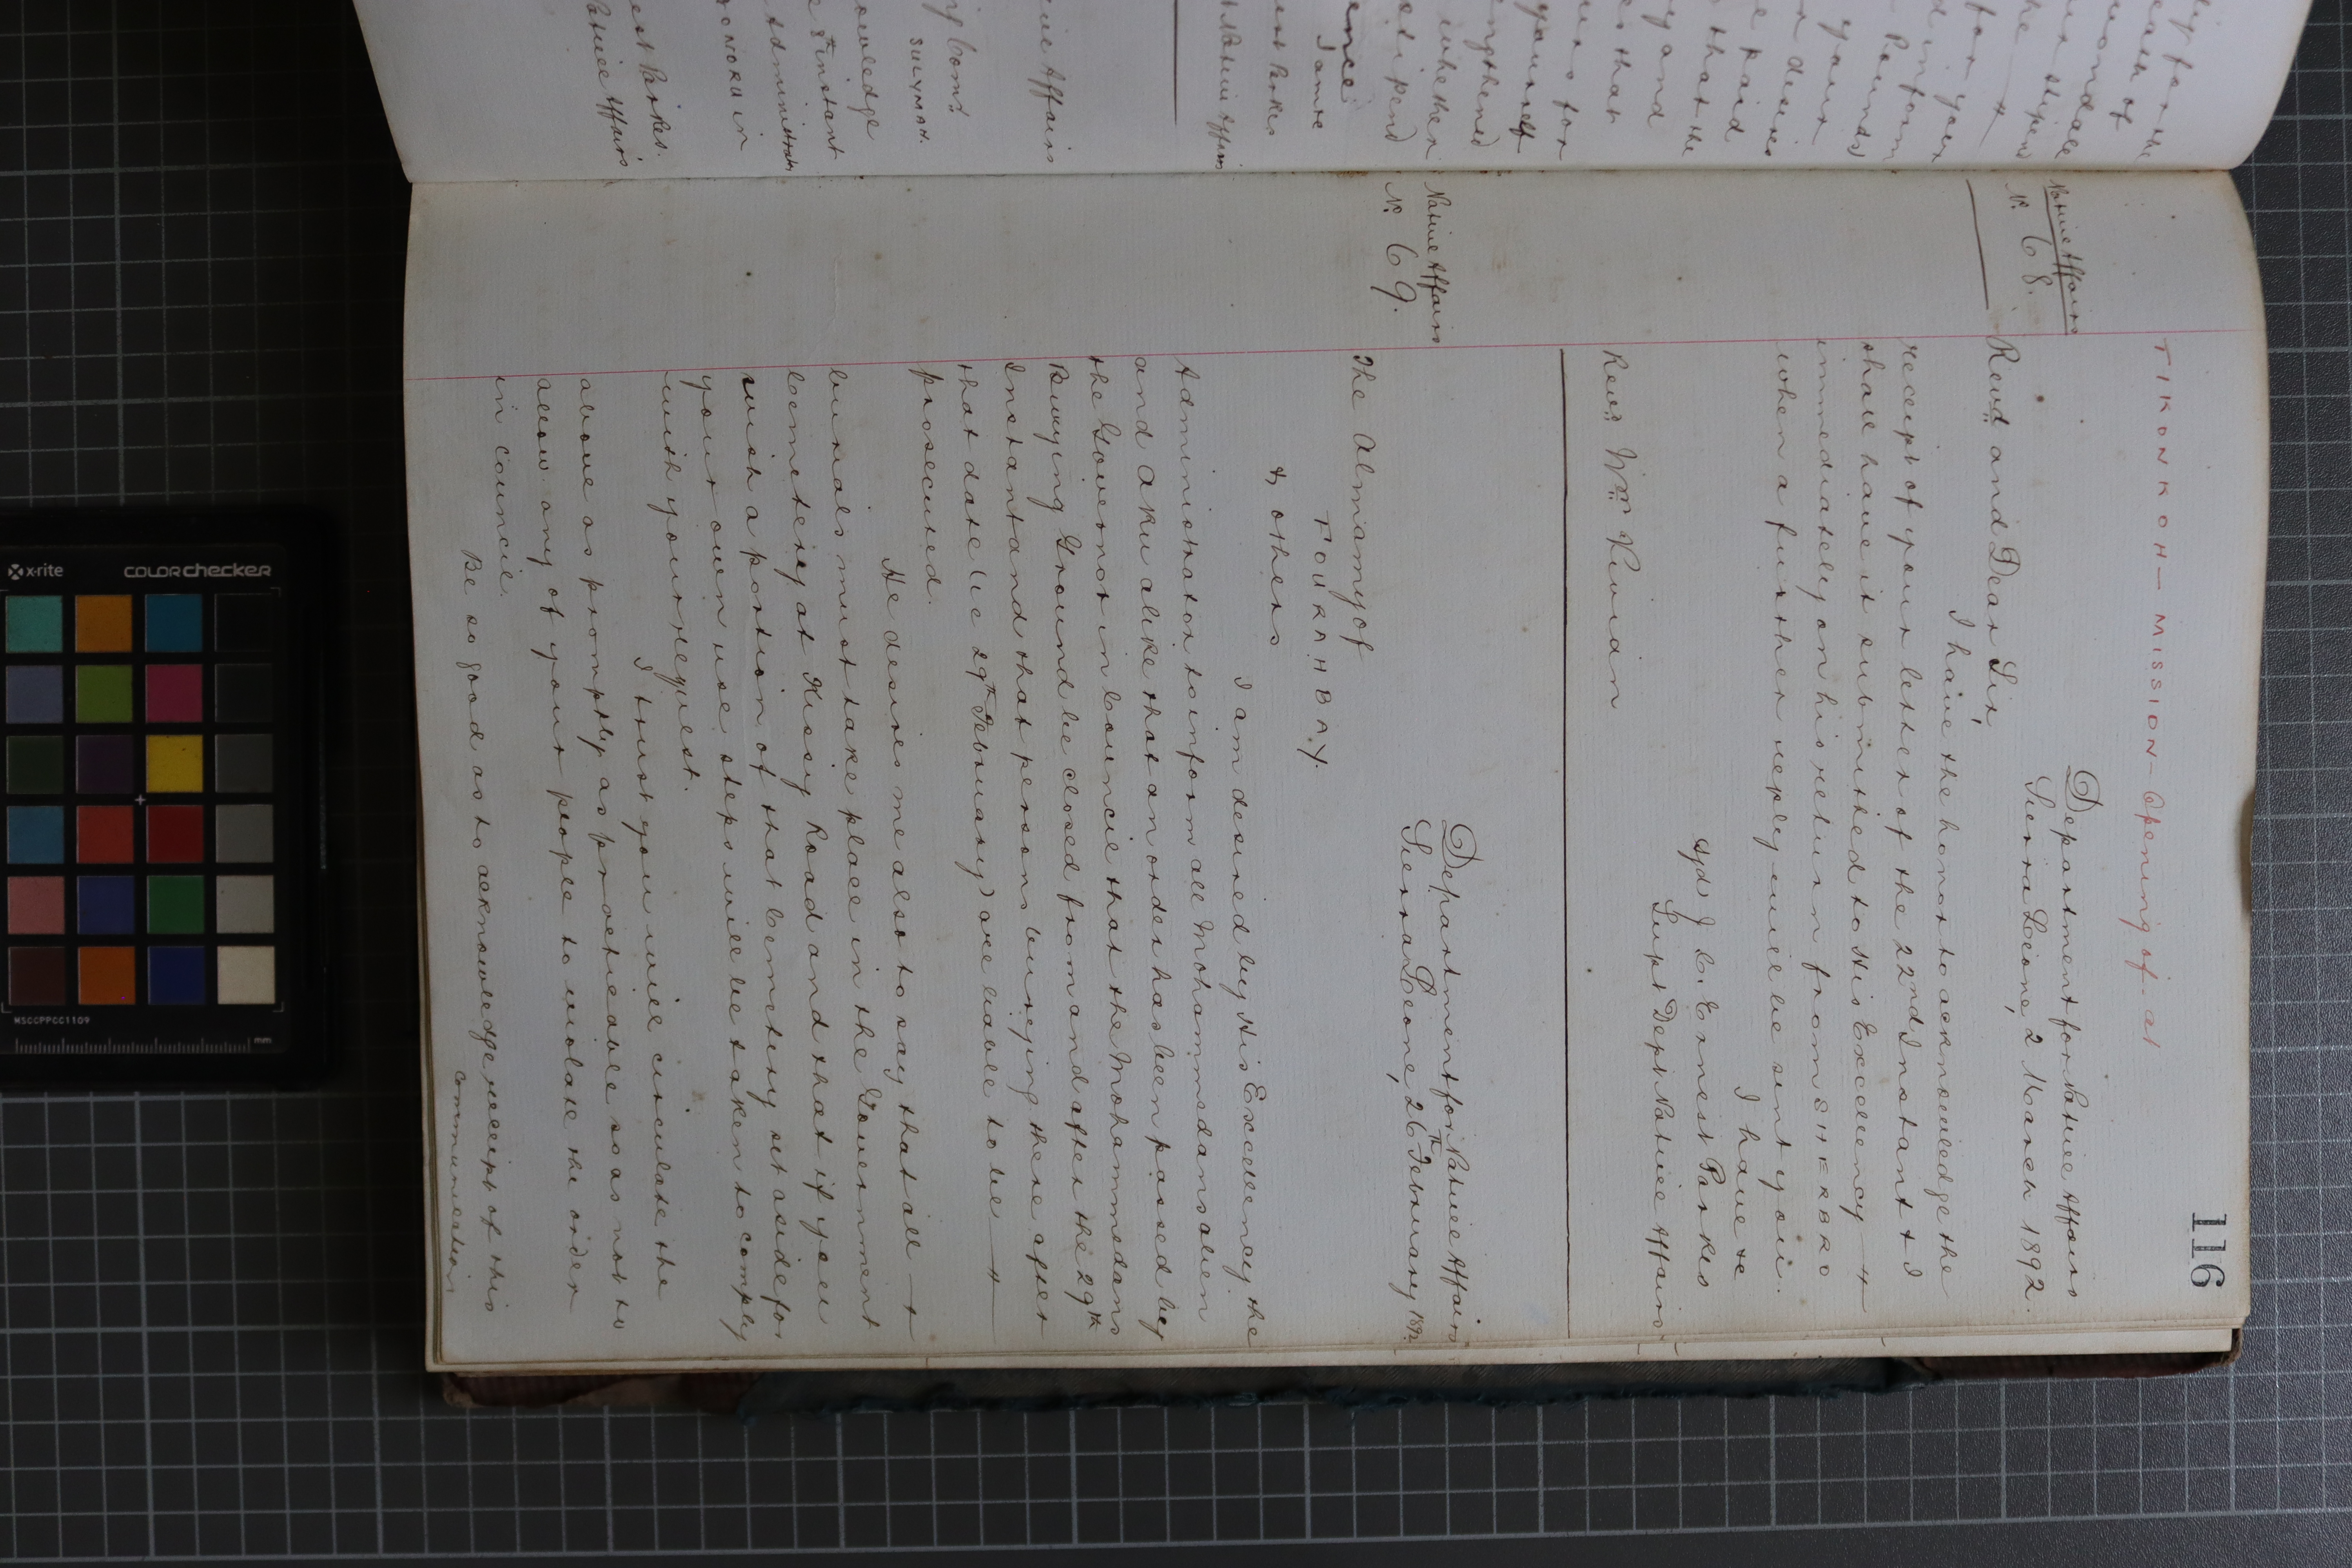 116
TIKONKOH — MISSION — Opening of at
Department for Native Affairs
Sierra Leone, 2 March 1892.
Native Affairs
No. 68.
Revd. and Dear Sir,
I have the honor to acknowledge the
receipt of your letter of the 22nd Instant & I
shall have it submitted to His Excellency
immediately on his return from SHERBRO
when a further reply will be sent you.
I have &c
Sgd J. C. Ernest Parkes
Supt Dept Native Affairs
Revd. Wm. Vivian
Native Affairs
No. 69.
Department for Native Affairs
Sierra Leone, 26th February 1892
The Almamy of
FOURAHBAY.
& others
I am desired by His Excellency the
Administrator to inform all Mohammedans alien
and Aku alike that an order has been passed by
the Governor in Council that the Mohammedans
Burying Ground be closed from and after the 29th
Instant and that persons burying there after
that date (ie 29th February) are liable to be
prosecuted.
He desires me also to say that all
burials must take place in the Government
Cemetery at Kissy Road and that if you
wish a portion of that Cemetery set aside for
your own use steps will be taken to comply
with your request.
I trust you will circulate the
above as promptly as practicable so as not to
allow any of your people to violate the order
in council.
Be so good as to acknowledge receipt of this
communication
ly for the
eath of
your stipend
he
for your
d inform
Pounds)
your
desires
said
that the
y and
that
for
yourself
ngthened
whether
stipend
ence
I am &c
est Parkes
t Native Affairs
tive Affairs
SULYMAH.
owledge
Instant
Administrator
NORU in
est Parkes.
Native Affairs
x-rite
colorchecker
MSCCPPCC1109
mm